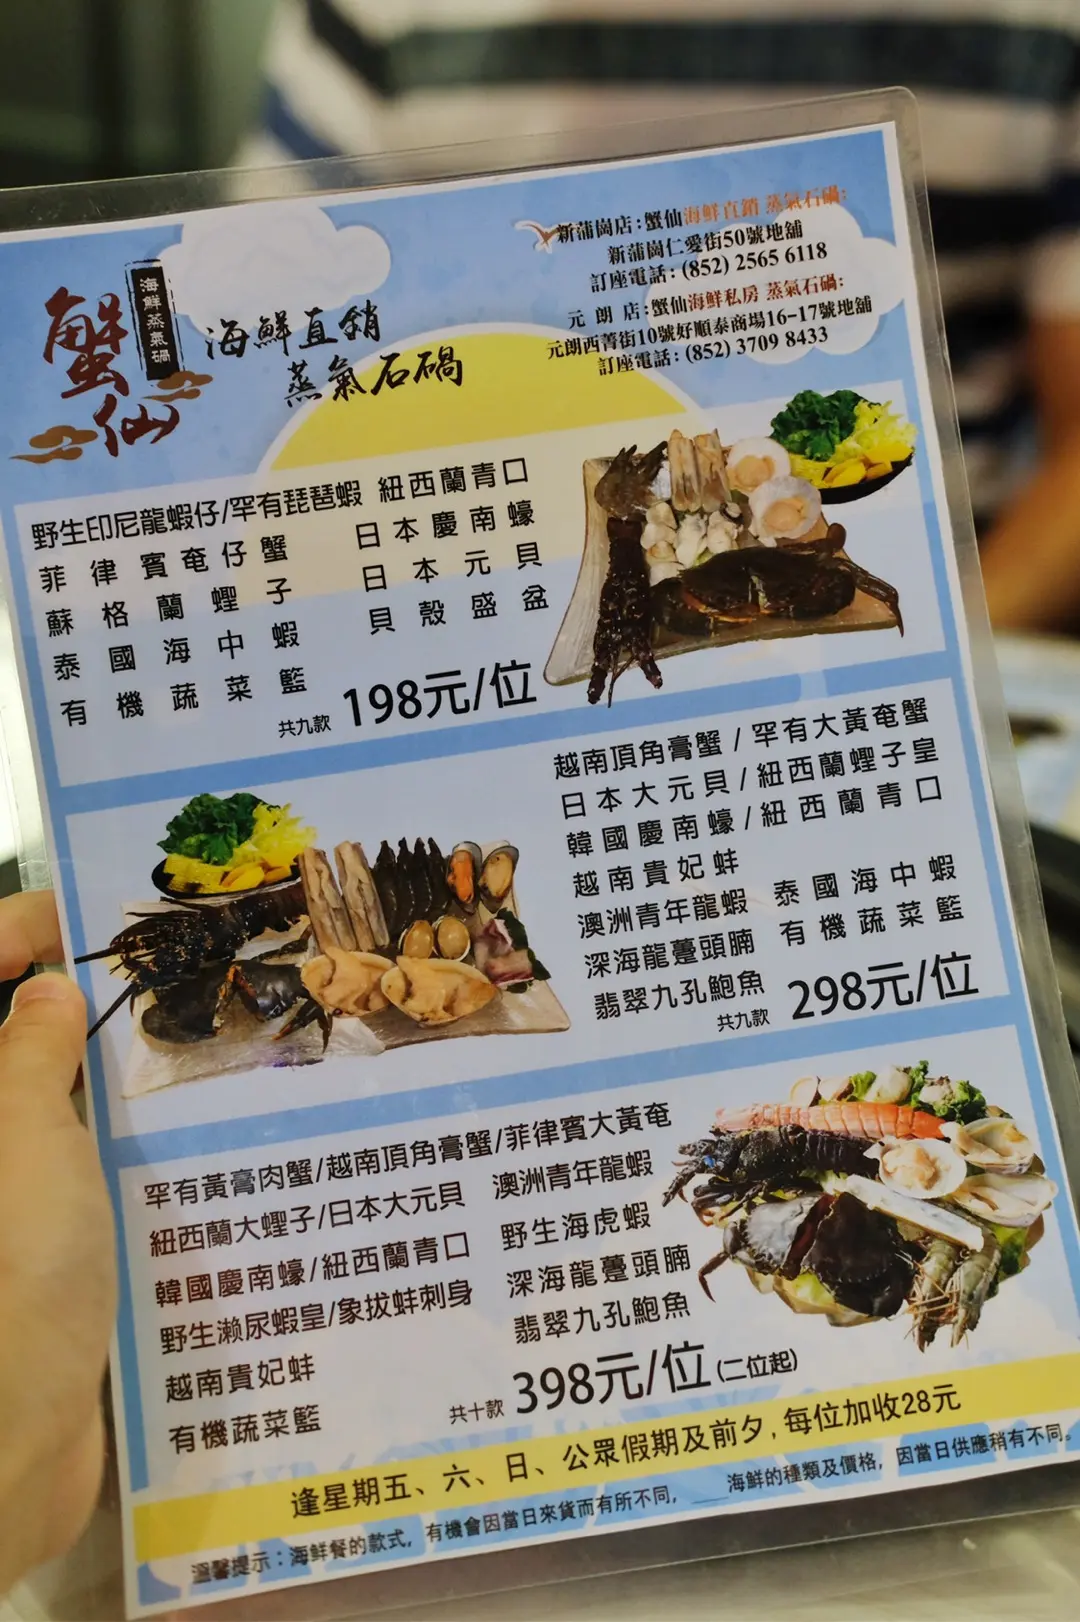 蟹仙
海鮮蒸氣鍋
海鮮直銷
蒸氣石鍋
新蒲崗店:蟹仙海鮮直銷 蒸氣石鍋:
新蒲崗仁愛街50號地舖
訂座電話:(852) 2565 6118
元朗店:蟹仙海鮮私房 蒸氣石鍋:
元朗西菁街10號好順泰商場16-17號地舖
訂座電話:(852) 3709 8433
野生印尼龍蝦仔/罕有琵琶蝦 紐西蘭青口
菲律賓奄仔蟹 日本慶南蠔
蘇格蘭蟶子 日本元貝
泰國海中蝦 貝殼盛盆
有機蔬菜籃
共九款 198元/位
越南頂角膏蟹/罕有大黃奄蟹
日本大元貝/紐西蘭蟶子皇
韓國慶南蠔/紐西蘭青口
越南貴妃蚌
澳洲青年龍蝦 泰國海中蝦
深海龍躉頭腩 有機蔬菜籃
翡翠九孔鮑魚
共九款 298元/位
罕有黃膏肉蟹/越南頂角膏蟹/菲律賓大黃奄
紐西蘭大蟶子/日本大元貝 澳洲青年龍蝦
韓國慶南蠔/紐西蘭青口 野生海虎蝦
野生瀨尿蝦皇/象拔蚌刺身 深海龍躉頭腩
越南貴妃蚌 翡翠九孔鮑魚
有機蔬菜籃
共十款 398元/位(二位起)
逢星期五、六、日、公眾假期及前夕,每位加收28元
溫馨提示:海鮮餐的款式,有機會因當日來貨而有所不同,
海鮮的種類及價格,因當日供應稍有不同。